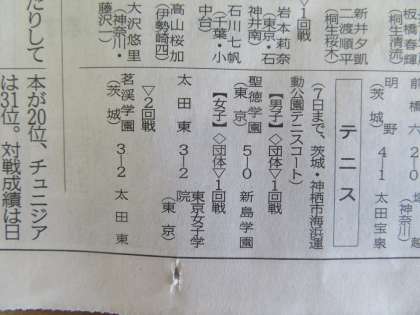 新井夕凱
二渡順平
(桐生桜木)
▽1回戦
岩本莉奈
(東京・石
神井南)
石川七帆
(千葉・小
中台)
高山桜加
(伊勢崎四)
大沢悠里
(神奈川・
藤沢一)
明野 4-1 太田宝泉
(茨城)
テニス
(7日まで、茨城・神栖市海浜運
動公園テニスコート)
【男子】◇団体▽1回戦
聖徳学園 5-0 新島学園
(東京)
【女子】◇団体▽1回戦
太田東 3-2 東京女子学
院(東京)
▽2回戦
茗溪学園 3-2 太田東
(茨城)
たりして
本が20位、チュニジア
は31位。対戦成績は日